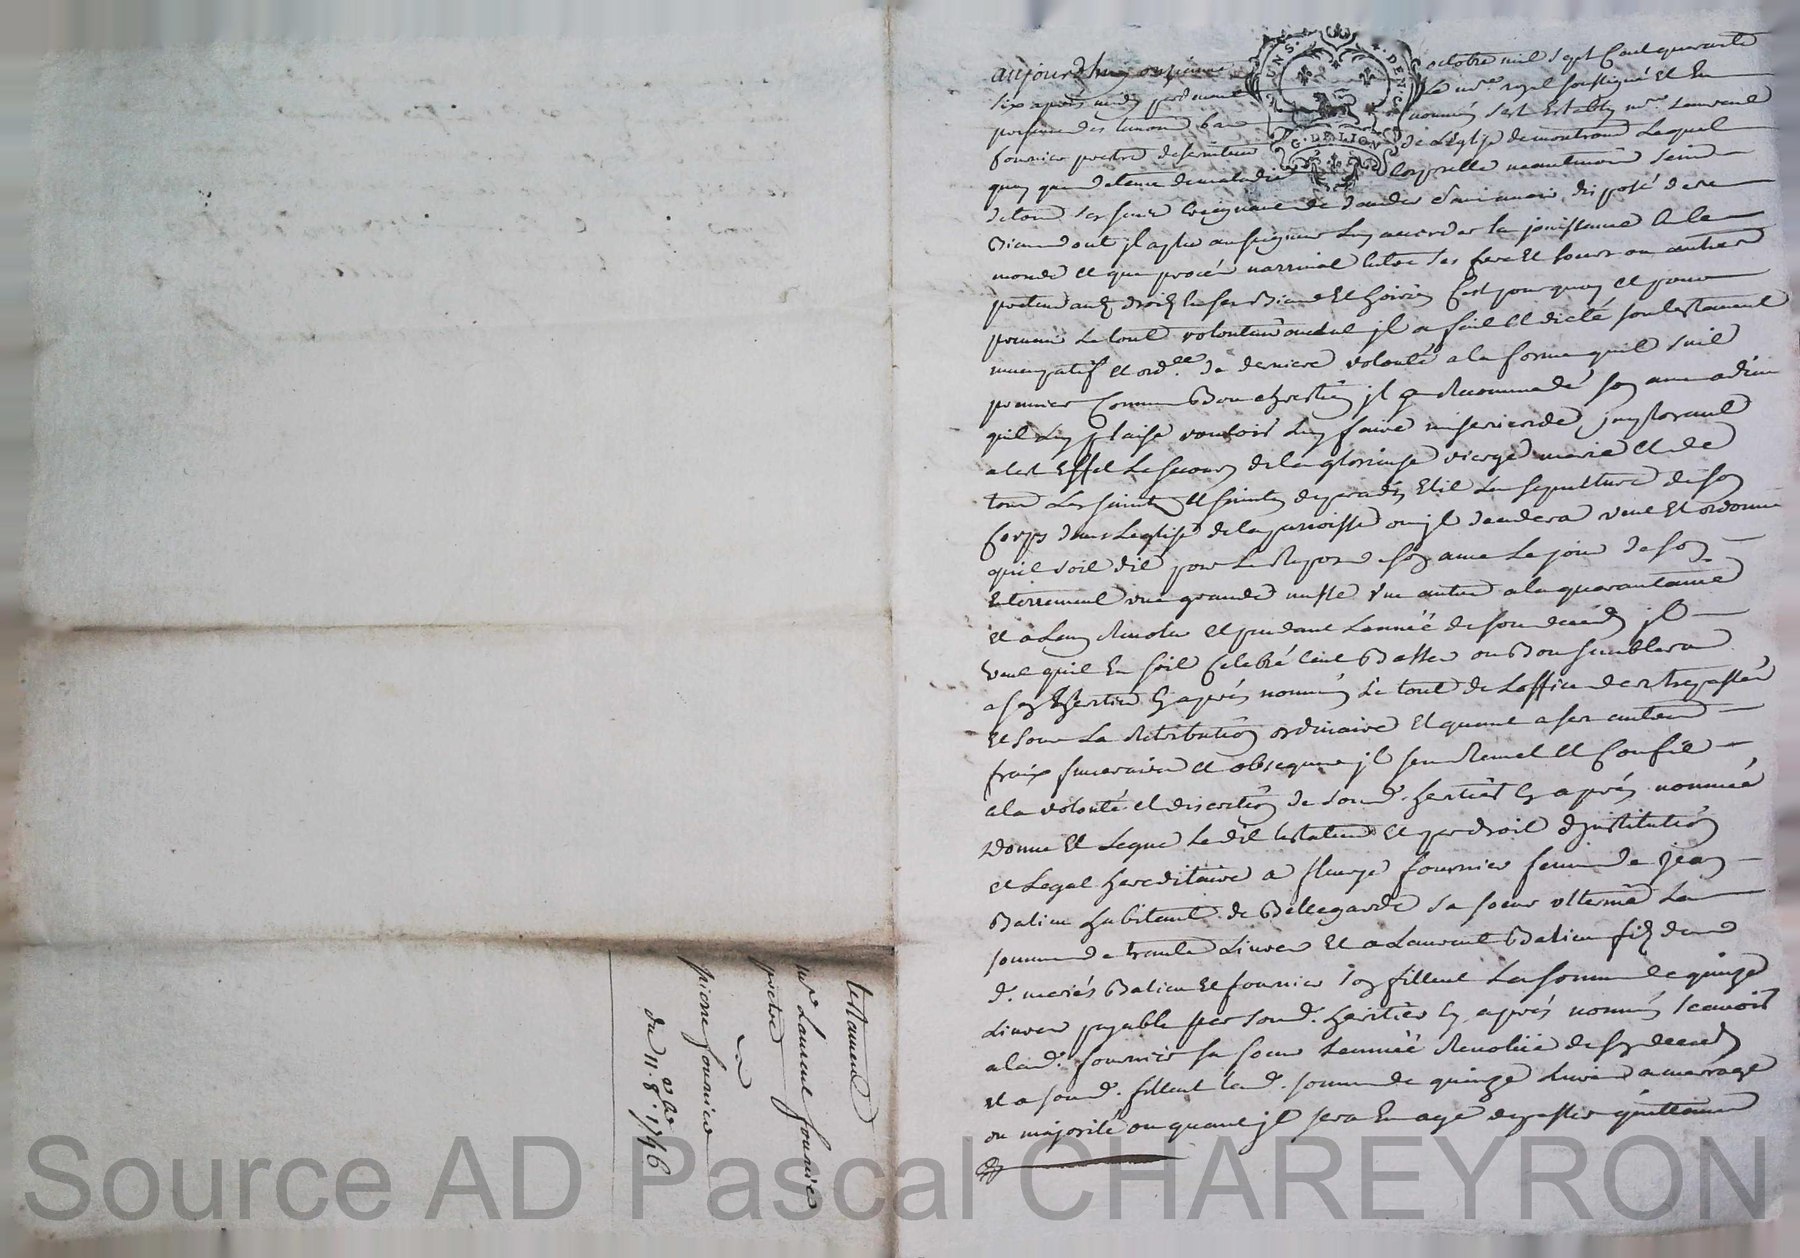 aujourdhuy onzieme octobre mil sept Cent quarante
six apres midy pardevant Le nore royal soussigné Et En
presence des temoins bas nommés s'est Estably mre Laurent
fournier prestre de L'Eglise de montrond Lequel
quoy que detenu de maladie Corporelle neantmoins sain
de tous ses sens Craignant de deceder sans avoir disposé de ses
Biens dont il a plu au seigneur Luy accorder la jouissance En Ce
monde et que procés narrivat Entre ses frere Et soeurs ou autres
pretendants droit En ses Biens Et hoirie C'est pourquoy et pour
prevenir Le tout volontairement jl a fait Et dicté son testament
nuncupatif et ordce de derniere volonté a la forme qu'il suit
premier Comme Bon chrestien jl a Recommandé son ame a dieu
qu'il Luy plaise vouloir Luy faire misericorde, jmplorant
a cet Effet Le secours de la glorieuse vierge marie Et de
tous Les saints Et saintes de paradis Elit La sepulture de son
Corps dans L'eglise de la parroisse ou jl decedera veut Et ordonne
qu'il soit dit pour Le Repos de son ame Le jour de son
Enterrement une grande messe Une autre a la quarantaine
Et a L'an Revolu et pendant L'année de son decedz jl
veut qu'il En soit Celebré Cent Basses ou Bon semblera
a son heritier Cy apres nommé Le tout de L'office des trepassés
Et sous La Retribution ordinaire Et quant a ses autres
fraix funeraires et obseques jl s'en Remet Et Confie
a la volonté et discretion de sond. heritier Cy apres nommé
Donne Et Legue Le dit testateur Et par droit d'jnstitution
et Legat hereditaire a fleurye fournier femme de jean
Balieu habitant de Bellegarde sa soeur Uterine La
somme de trente Livres Et a Laurent Balieu fils des
d. mariés Balieu Et fournier son filleul La somme de quinze
Livres payable par sond. heritier Cy apres nommé scavoir
a lad. fournier sa soeur L'année Revolue de son decedz
Et a sond. filleul lad. somme de quinze Livres a mariage
ou majorité ou quant jl sera En age de passer quittance
testament
mre Laurent fournier
prestre
pierre fournier
du 11. 8bre 1746
UNS. DEN. C.
G. DE LION
Source AD Pascal CHAREYRON